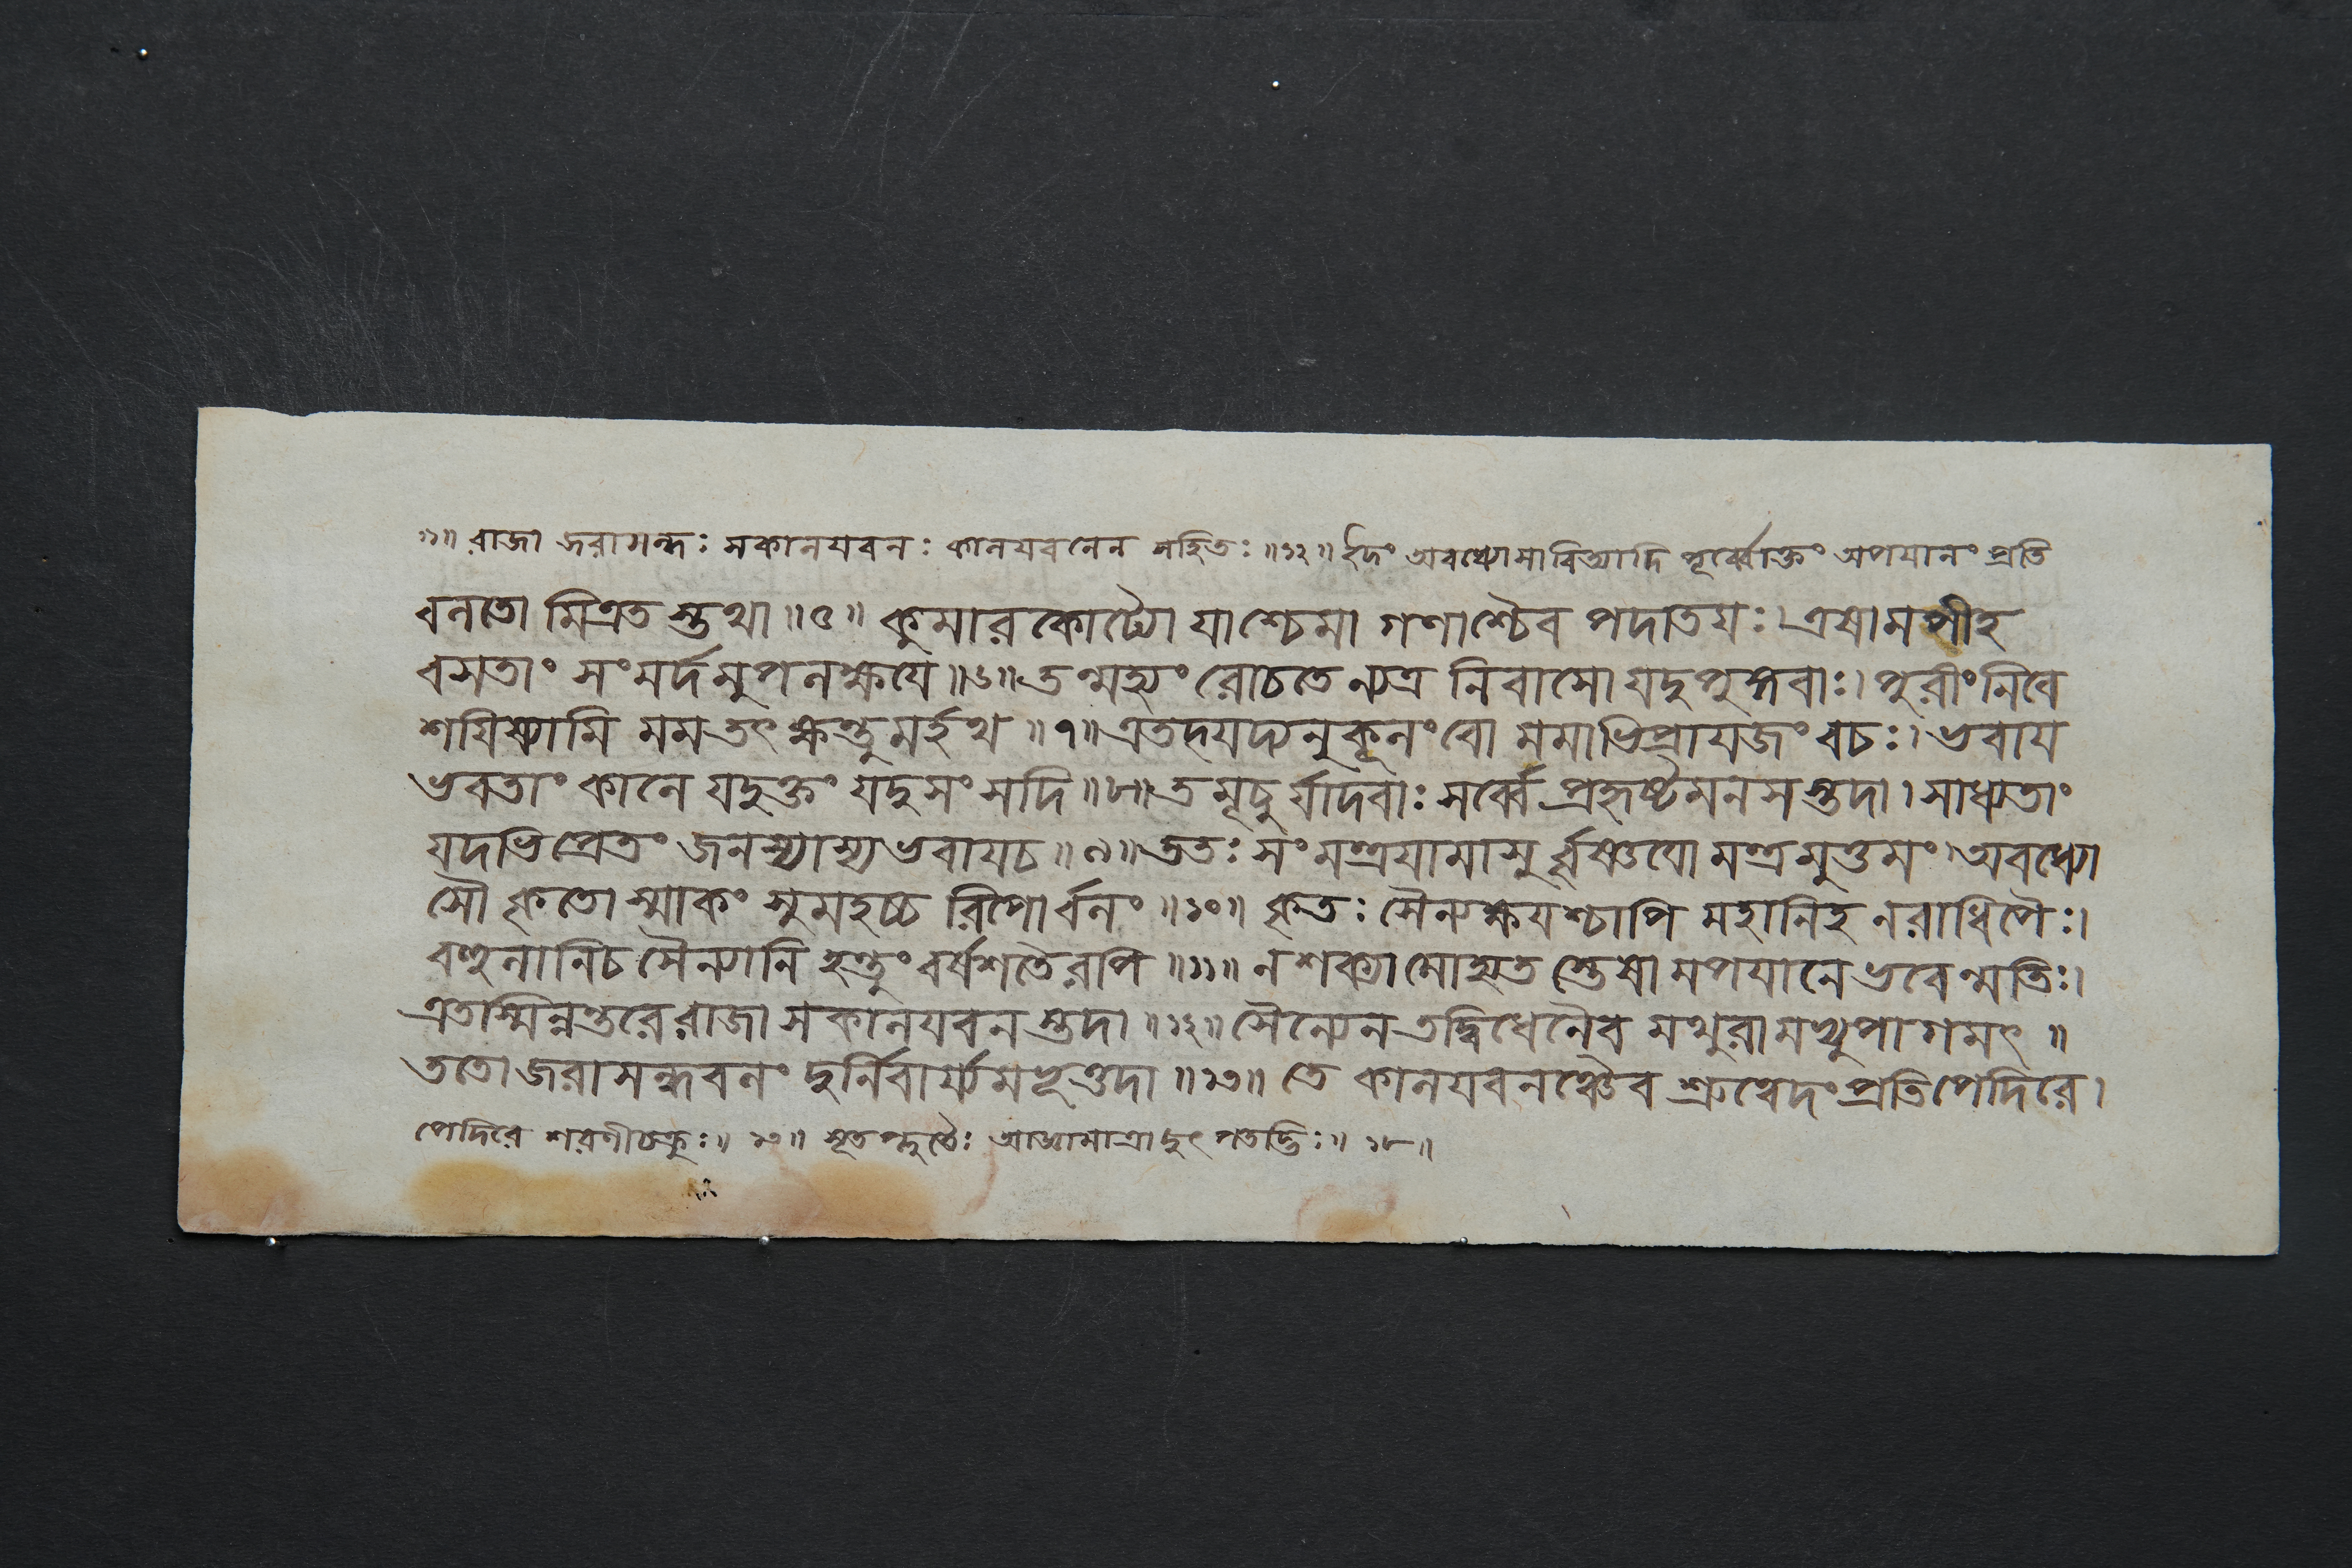 ১১॥ রাজা জরাসন্ধঃ সকালযবনঃ কালযবনেন সহিতঃ ॥১২॥ ইদং অবধ্যোসাবিত্যাদি পূর্ব্বোক্তং অপযানং প্রতি
বলতো মিত্রত স্তথা ॥৫॥ কুমারকোট্যো যাশ্চেমা গণাশ্চৈব পদাতয়ঃ। এষামপীহ
বসতাং সংমর্দমুপলক্ষয়ে ॥৬॥ তন্মহ্যং রোচতে ন্যত্র নিবাসো যদুপুঙ্গবাঃ। পুরীং নিবে
শয়িষ্যামি মম তৎ ক্ষন্তুমর্হথ ॥৭॥ এতদযদ্যনুকূলং বো মমাভিপ্রায়জং বচঃ। ভবায়
ভবতাং কালে যদুক্তং যদুসংসদি ॥৮॥ তমূচুর্যাদবাঃ সর্ব্বে প্রহৃষ্টমনসস্তদা। সাধ্যতাং
যদভিপ্রেতং জনস্যাস্য ভবায়চ ॥৯॥ ততঃ সংমন্ত্রযামাসুর্বৃষ্ণয়ো মন্ত্রমুত্তমং। অবধ্যো
সৌ কৃতো স্মাকং সুমহচ্চ রিপোর্বলং ॥১০॥ কৃতঃ সৈন্যক্ষয়শ্চাপি মহানিহ নরাধিপৈঃ।
বহুলানিচ সৈন্যানি হন্তুং বর্ষশতৈরপি ॥১১॥ ন শক্যামোহ্যত স্তেষা মপযানে ভবেন্মতিঃ।
এতাস্মিন্নন্তরে রাজা সকালযবন স্তদা ॥১২॥ সৈন্যেন তদ্বিধেনৈব মথুরামভ্যুপাগমৎ ॥
ততো জরাসন্ধবলং দুর্নিবার্য্যমভূত্তদা ॥১৩॥ তে কালযবনঞ্চৈব শ্রুত্বেদং প্রতিপেদিরে।
পেদিরে শরণীচক্রুঃ॥ ১৩॥ আজ্ঞামাত্রাদুৎপতদ্ভিঃ॥ ১৮॥